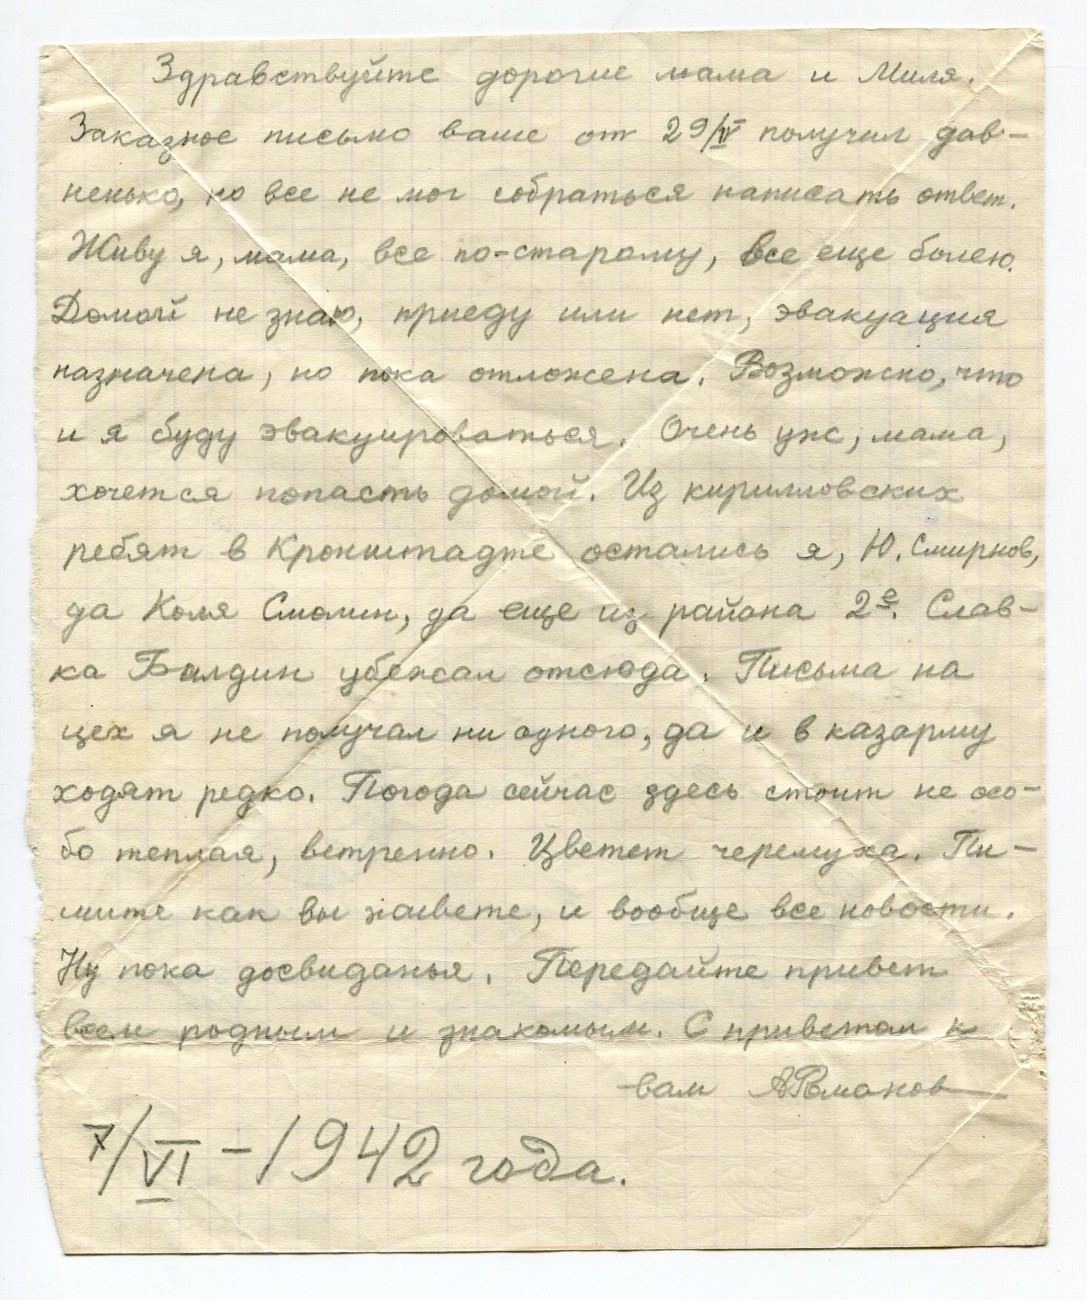 Здравствуйте дорогие мама и Миля.
Заказное письмо ваше от 29/IV получил дав-
ненько, но все не мог собраться написать ответ.
Живу я, мама, все по-старому, все еще болею.
Домой не знаю, приеду или нет, эвакуация
назначена, но пока отложена. Возможно, что
и я буду эвакуироваться. Очень уж, мама,
хочется попасть домой. Из кирилловских
ребят в Кронштадте остались я, Ю. Смирнов,
да Коля Смолин, да еще из района 2е. Слав-
ка Балдин убежал отсюда. Письма на
цех я не получал ни одного, да и в казарму
ходят редко. Погода сейчас здесь стоит не осо-
бо теплая, ветренно. Цветет черемуха. Пи-
шите как вы живете, и вообще все новости.
Ну пока досвиданья. Передайте привет
всем родным и знакомым. С приветом к
вам АРоманов
7/VI - 1942 года.